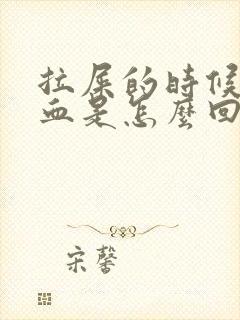 拉屎的時候
血是怎麼回
宋馨